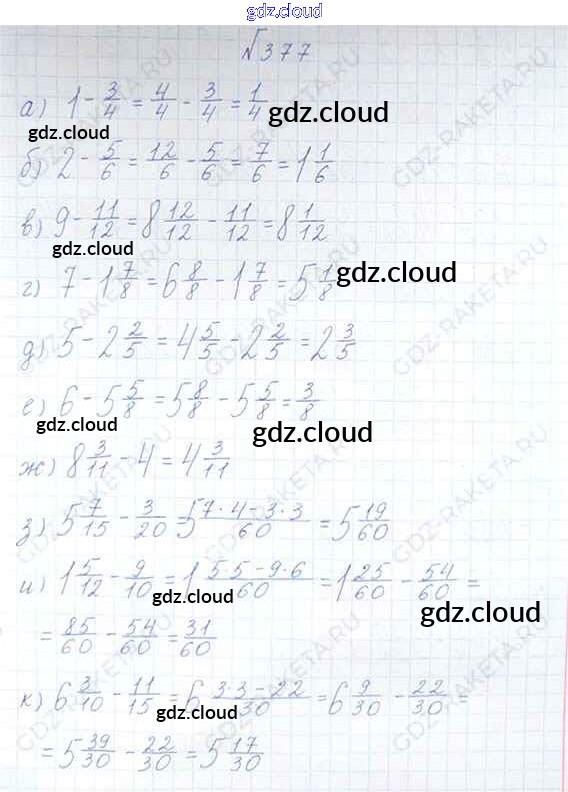 gdz.cloud
√377
а) 1 - 3/4 = 4/4 - 3/4 = 1/4 gdz.cloud
gdz.cloud
б) 2 - 5/6 = 12/6 - 5/6 = 7/6 = 1 1/6
в) 9 - 11/12 = 8 12/12 - 11/12 = 8 1/12
gdz.cloud
г) 7 - 1 7/8 = 6 8/8 - 1 7/8 = 5 1/8 gdz.cloud
д) 5 - 2 2/5 = 4 5/5 - 2 2/5 = 2 3/5
е) 6 - 5 5/8 = 5 8/8 - 5 5/8 = 3/8
gdz.cloud gdz.cloud
ж) 8 3/11 - 4 = 4 3/11
з) 5 7/15 - 3/20 = 5 (7·4-3·3)/60 = 5 19/60
и) 1 5/12 - 9/10 = 1 (5·5-9·6)/60 = 1 25/60 - 54/60 =
gdz.cloud gdz.cloud
= 85/60 - 54/60 = 31/60
к) 6 3/10 - 11/15 = 6 (3·3-22)/30 = 6 9/30 - 22/30 =
gdz.cloud
= 5 39/30 - 22/30 = 5 17/30
GDZ-RAKETA.RU